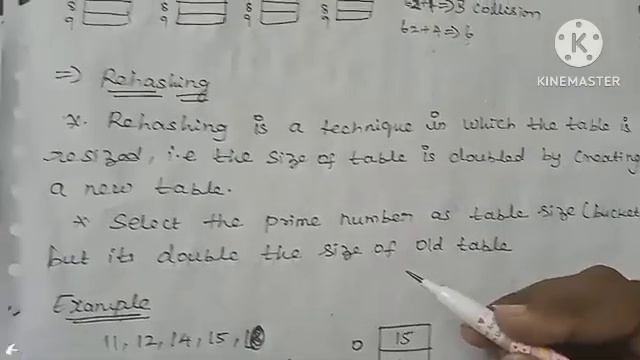 8
9
8
9
8
9
8
9
62+1⇒3 collision
62+4⇒6
KINEMASTER
⇒ Rehashing
* Rehashing is a technique in which the table is
resized, i.e the size of table is doubled by creating
a new table.
* Select the prime number as table size (bucket
but its double the size of old table
Example
11, 12, 14, 15,
0 15